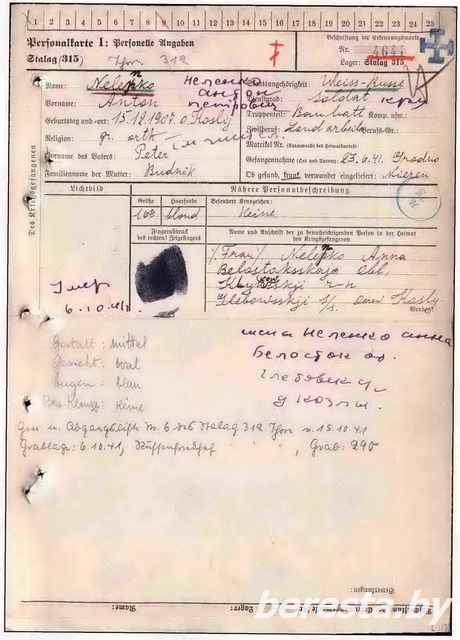 1 2 3 4 5 6 7 8 9 10 11 12 13 14 15 16 17 18 19 20 21 22 23 24 25
Personalkarte I: Personelle Angaben
Stalag (315) Thorn 312
Beschriftung der Erkennungsmarke
Nr. 4641
Lager: Stalag 315
Des Kriegsgefangenen
Name: Nelepko Неленко
Vorname: Anton антон петрович
Geburtstag und -ort: 15.12.1907. o. Kosly
Religion: gr. orth.
Vorname des Vaters: Peter
Familienname der Mutter: Budnik
Staatsangehörigkeit: Weiss-Russe
Dienstgrad: Soldat
Truppenteil: Baubatt Komp. usw.:
Zivilberuf: Landarbeiter Berufs-Gr.:
Matrikel Nr. (Stammrolle des Heimatstaates):
Gefangennahme (Ort und Datum): 23.6.41. Grodno
Ob gesund, krank, verwundet eingeliefert: Nieren
Lichtbild
Nähere Personalbeschreibung
Größe Haarfarbe Besondere Kennzeichen:
169 blond Keine
Fingerabdruck des rechten! Zeigefingers
Name und Anschrift der zu benachrichtigenden Person in der Heimat des Kriegsgefangenen
/Frau/ Nelepko Anna
Belostokskaja Obl.
r-n
Glebowskji s/s. derew Kosly
Wenden!
Умер
6.10.41
Gestalt: mittel
Gesicht: oval
Augen: blau
Bes Kennz: keine
жена Неленко анна
Белосток об.
д козлы.
Gem. u. Abgangsliste Nr. 6 des Stalag 312 Thorn v. 15.10.41
Grablage: 6.10.41, Russenfriedhof " " , Grab: 290
Bemerkungen:
Name:
Lager:
beresta.by